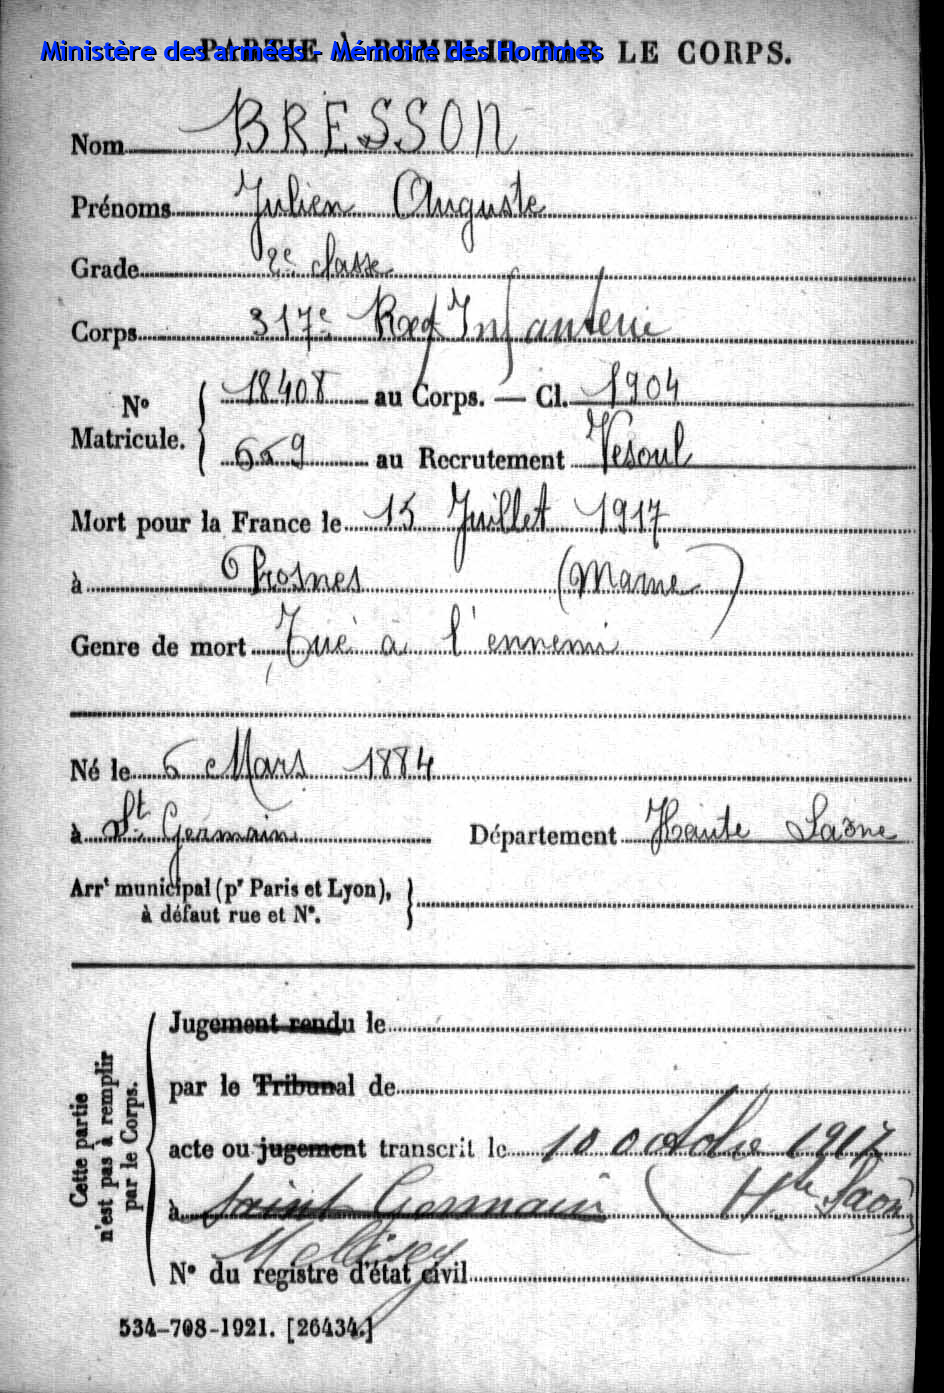 PARTIE À REMPLIR PAR LE CORPS.
Ministère des armées - Mémoire des Hommes
Nom BRESSON
Prénoms Julien Auguste
Grade 2e classe
Corps 317e Reg Infanterie
No Matricule. { 18408 au Corps. — Cl. 1904
659 au Recrutement Vesoul
Mort pour la France le 15 Juillet 1917
à Prosnes (Marne)
Genre de mort Tué à l'ennemi
Né le 6 Mars 1884
à St Germain Département Haute Saône
Arrt municipal (pr Paris et Lyon),
à défaut rue et No.
Cette partie n'est pas à remplir par le Corps.
Jugement rendu le
par le Tribunal de
acte ou jugement transcrit le 10 octobre 1917
à Saint Germain (Hte Saône)
Mellisey
No du registre d'état civil
534-708-1921. [26434.]